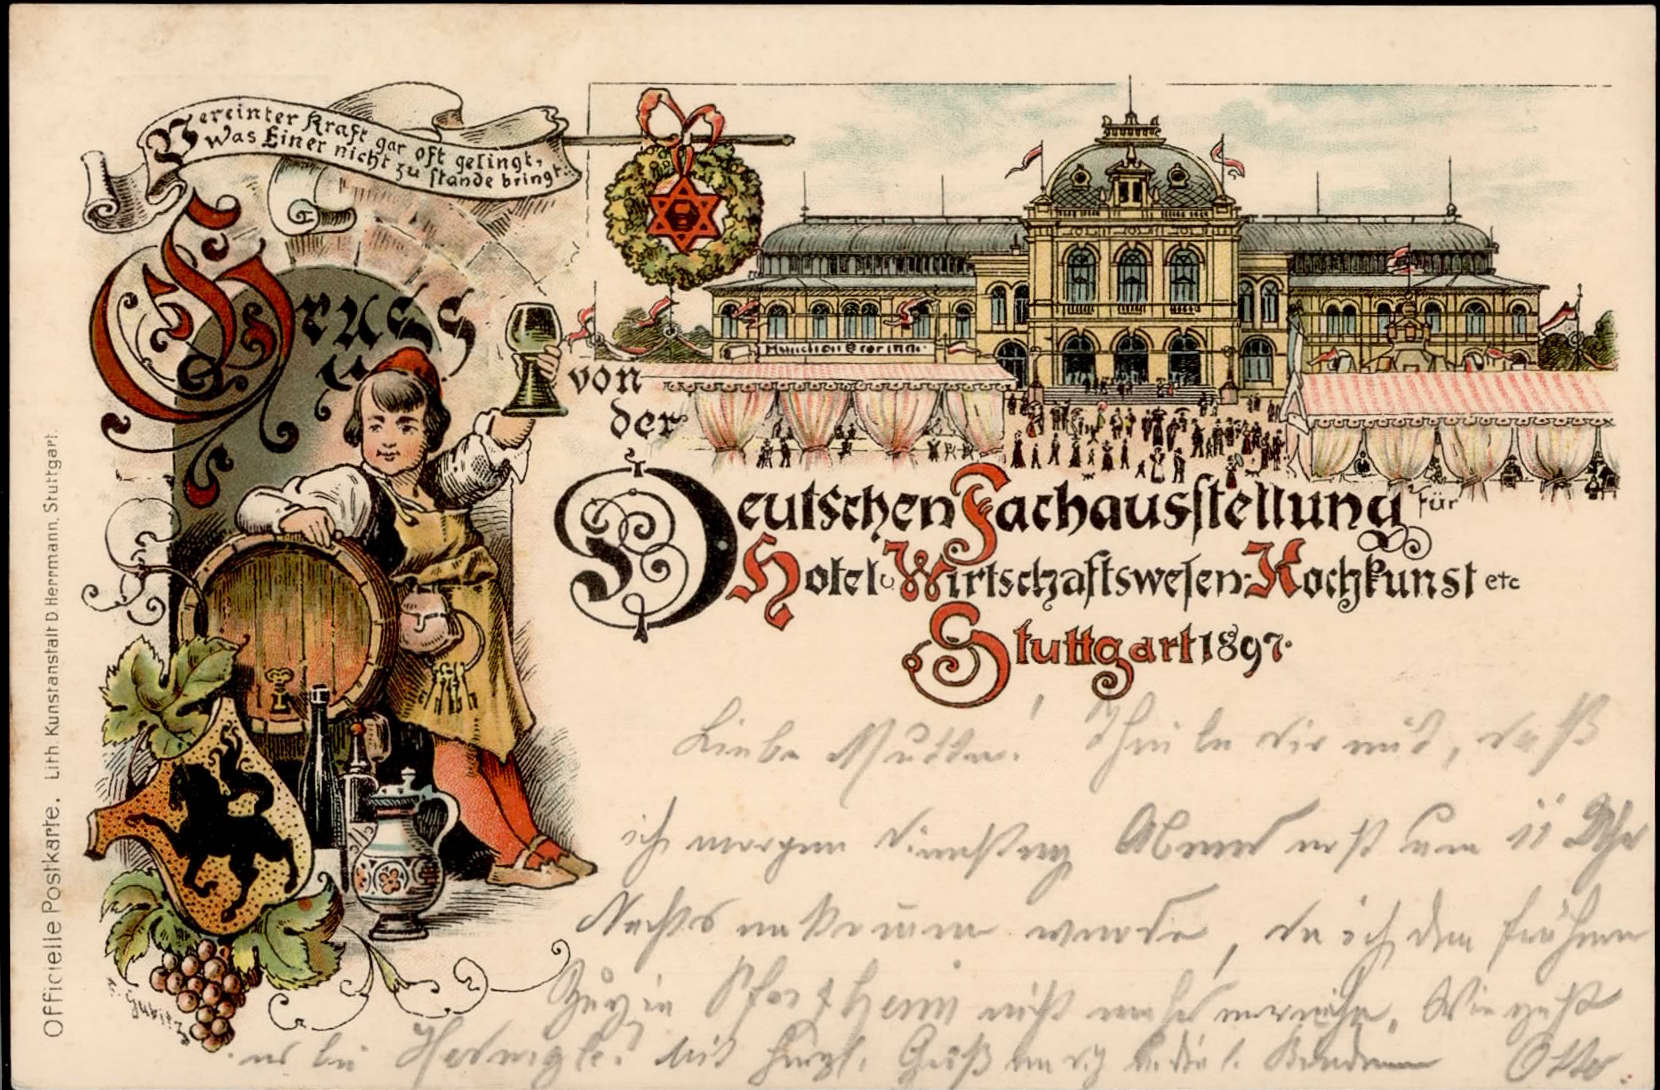 Vereinter Kraft gar oft gelingt,
Was Einer nicht zu stande bringt.
Gruss
von
der
Münchener Bierinn
Deutschen Fachausstellung für
Hotel u. Wirtschaftswesen, Kochkunst etc
Stuttgart 1897.
Liebe Mutter! Theile dir mit, daß
ich morgen Dienstag Abend erst um 11 Uhr
Nachts ankommen werde, da ich den frühern
Zug in Pforzheim nicht mehr erreiche. Wie geht
es bei Mit herzl. Gruß Otto.
Officielle Postkarte. Lith. Kunstanstalt D. Herrmann, Stuttgart.